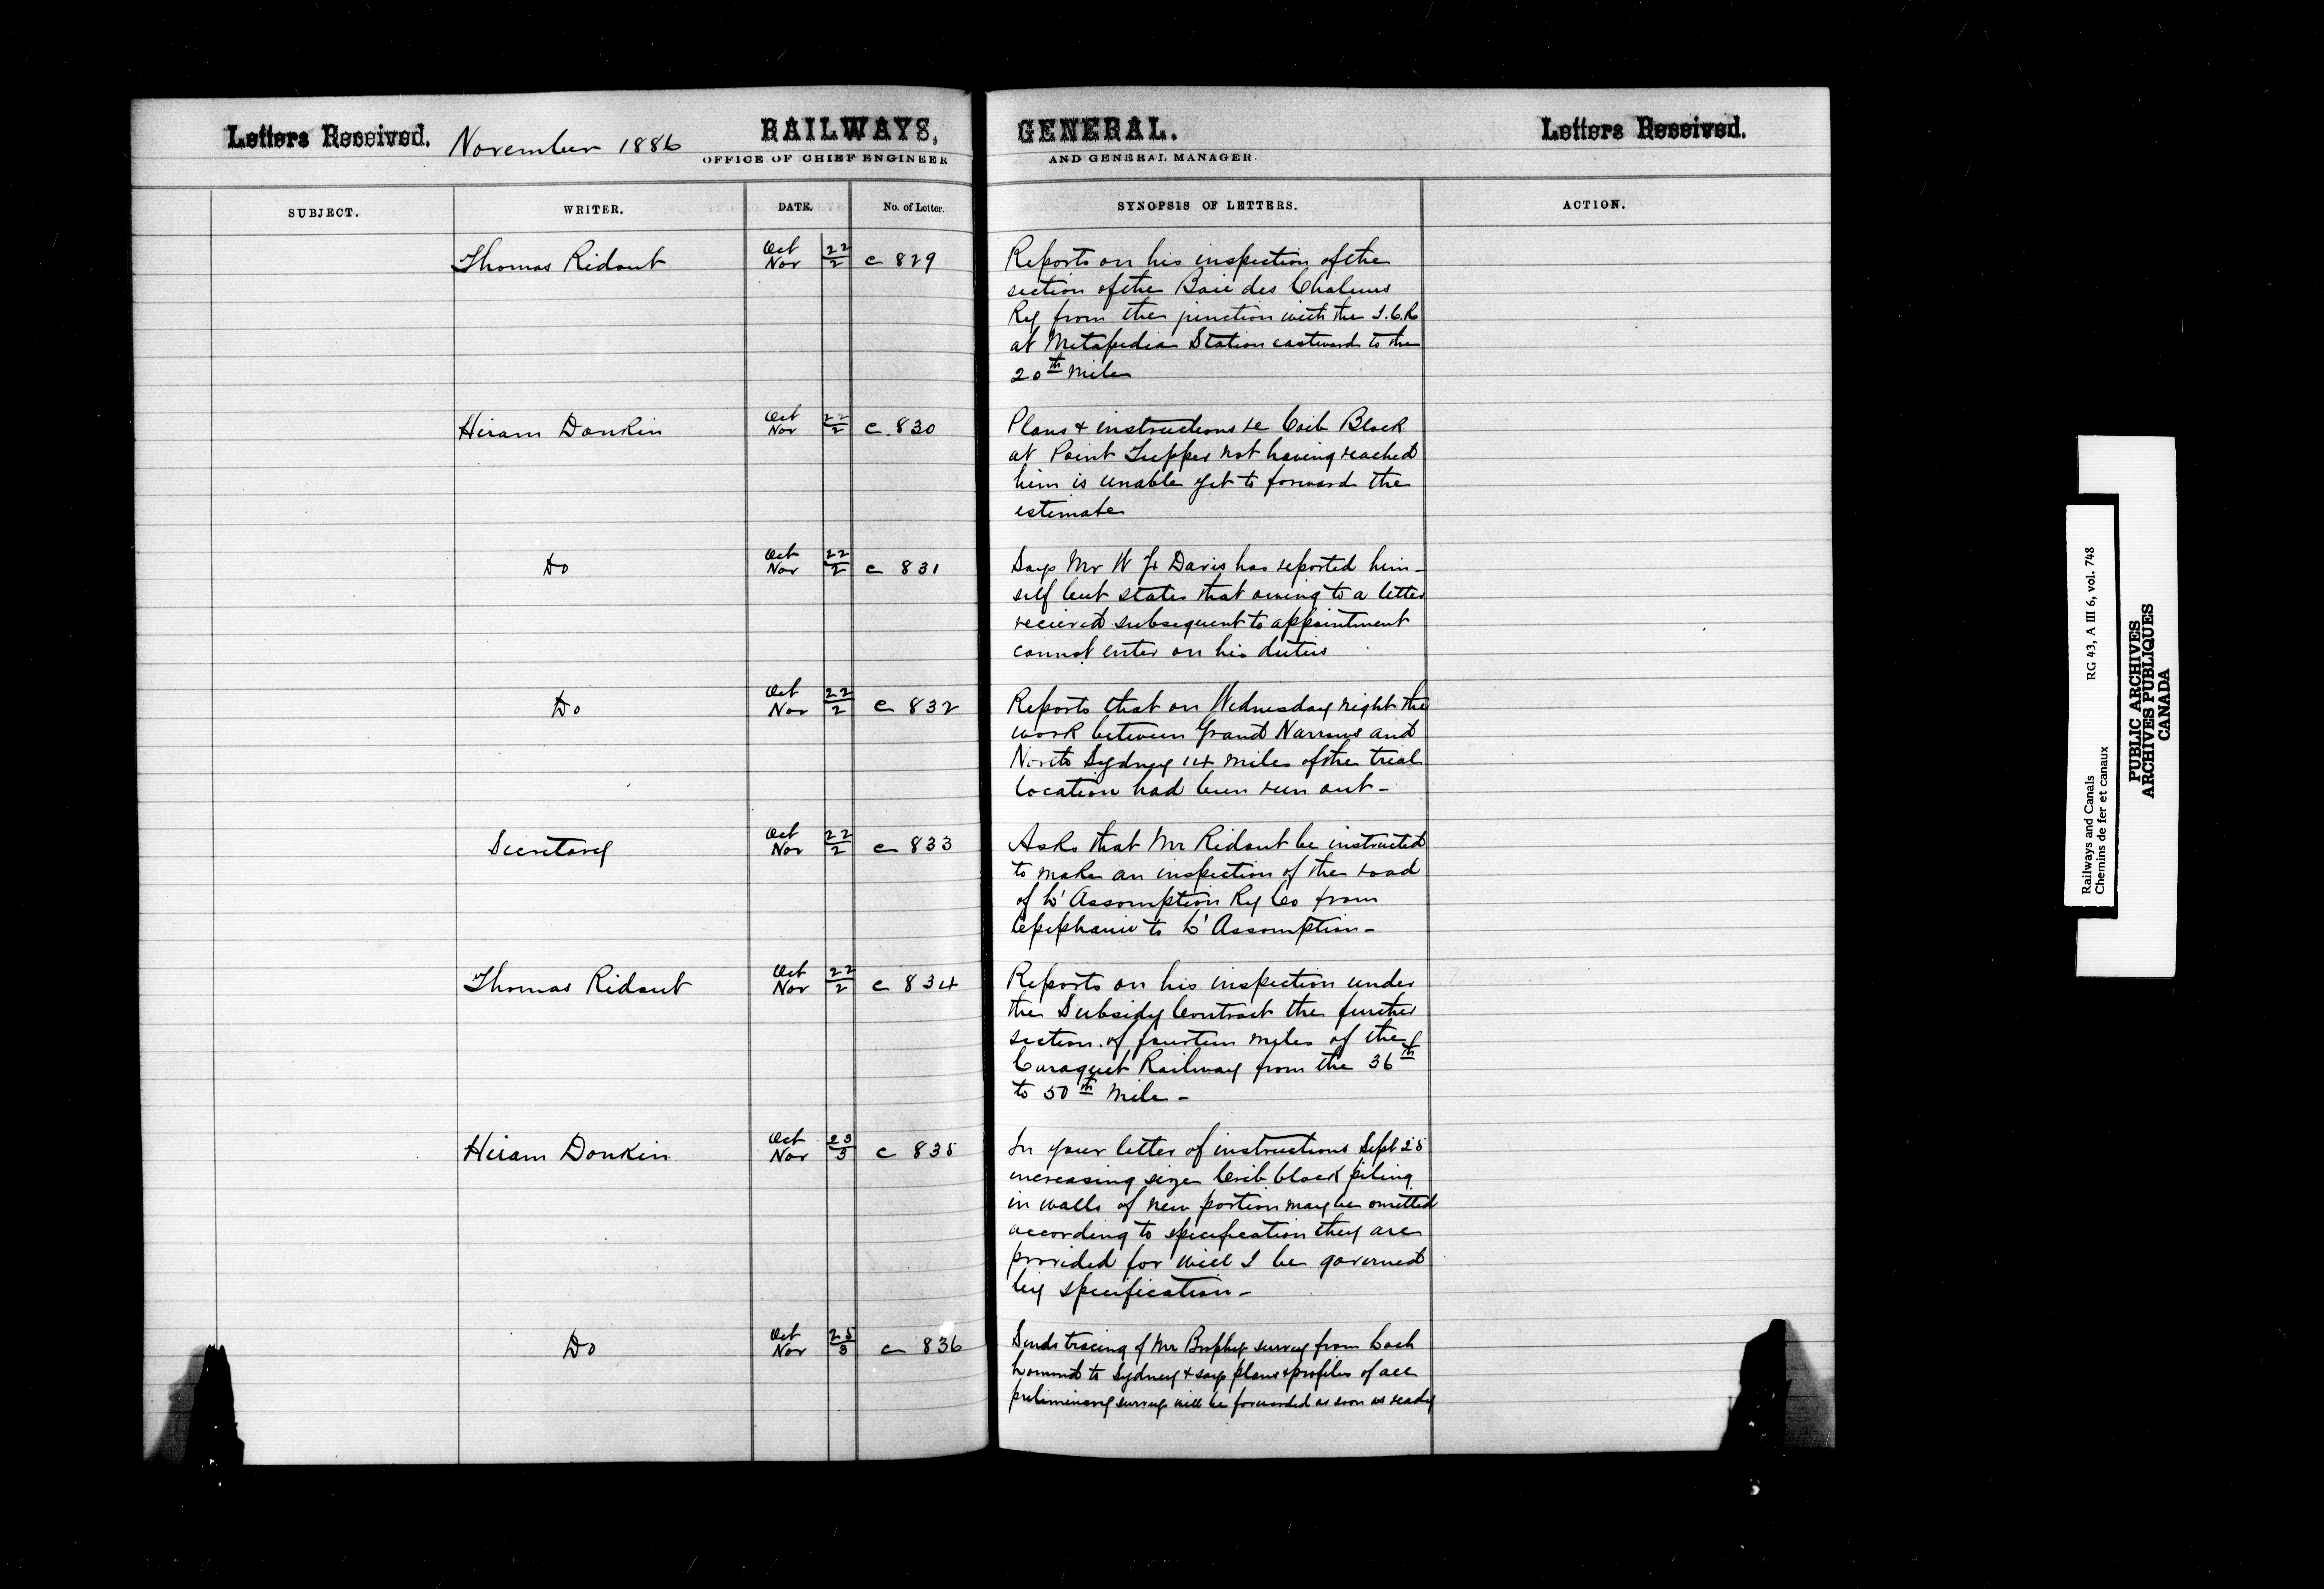 Letters Received. November 1886 RAILWAYS, GENERAL. Letters Received.
OFFICE OF CHIEF ENGINEER AND GENERAL MANAGER.
SUBJECT. WRITER. DATE. No. of Letter. SYNOPSIS OF LETTERS. ACTION.
Thomas Ridout Oct 22 Nov 2 c 829 Reports on his inspection of the
section of the Baie des Chaleurs
Ry from the junction with the I.C.R
at Metapedia Station eastward to the
20th mile
Hiram Donkin Oct 22 Nov 2 c 830 Plans & instructions re Crib Block
at Point Tupper not having reached
him is unable yet to forward the
estimate
Do Oct 22 Nov 2 c 831 Says Mr W Davis has reported him-
self but states that owing to a letter
recieved subsequent to appointment
cannot enter on his duties
Do Oct 22 Nov 2 c 832 Reports that on Wednesday night the
work between Grand Narrows and
North Sydney 14 miles of the trial
location had been run out -
Secretary Oct 22 Nov 2 c 833 Asks that Mr Ridout be instructed
to make an inspection of the road
of L'Assomption Ry Co from
Lepiphanie to L'Assomption -
Thomas Ridout Oct 22 Nov 2 c 834 Reports on his inspection under
the Subsidy Contract the further
section of fourteen miles of the
Caraquet Railway from the 36th
to 50th mile -
Hiram Donkin Oct 23 Nov 3 c 835 In your letter of instructions Sept 25
increasing size Crib block piling
in walls of new portion may be omitted
according to specification they are
provided for will I be governed
by specification -
Do Oct 25 Nov 3 c 836 Sends tracing of Mr Brophy survey from Loch
Lomond to Sydney & says plans & profiles of all
preliminary surveys will be forwarded as soon as ready
Railways and Canals RG 43, A III 6, vol. 748
Chemins de fer et canaux
PUBLIC ARCHIVES
ARCHIVES PUBLIQUES
CANADA